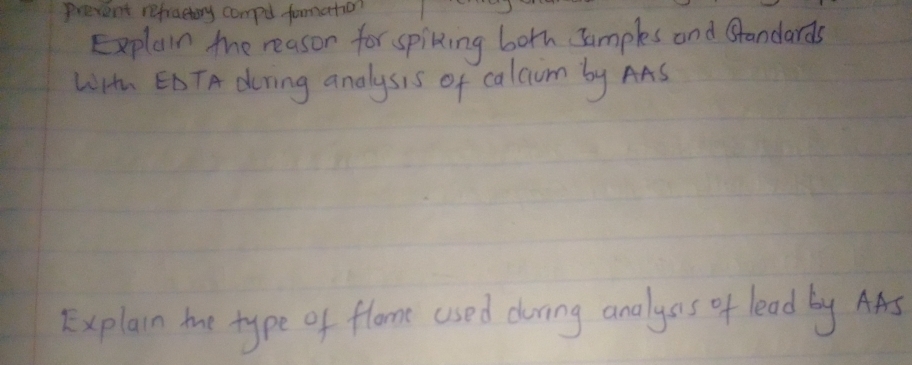 prevent refractory compd formation
Explain the reason for spiking both samples and Standards
With EDTA during analysis of calcium by AAS
Explain the type of flame used during analysis of lead by AAS